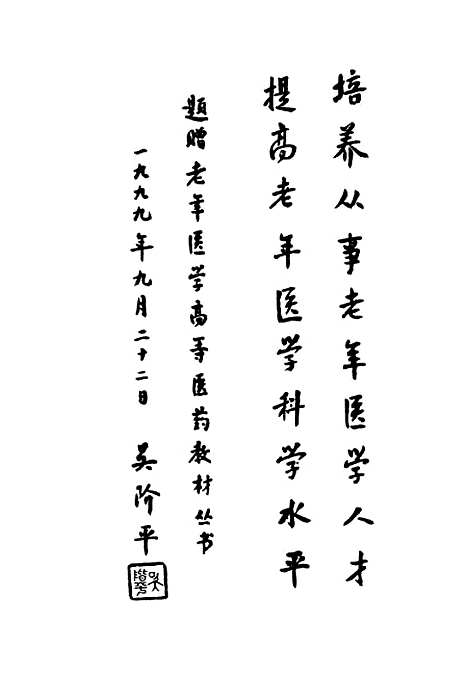 培养从事老年医学人才
提高老年医学科学水平
题赠老年医学高等医药教材丛书
一九九九年九月二十二日 吴阶平